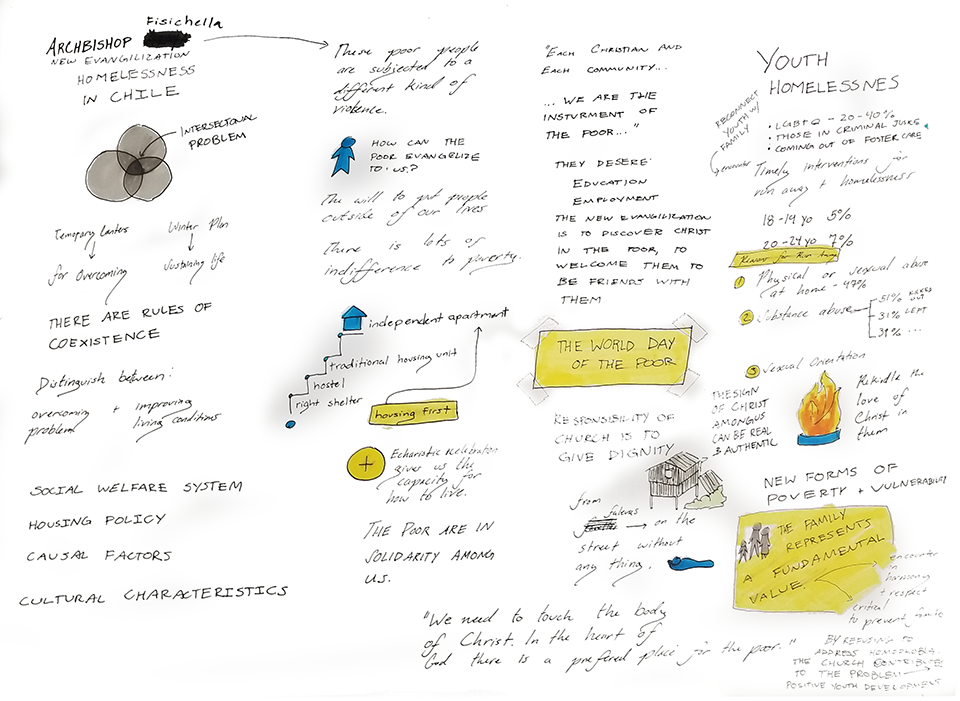 Fisichella
ARCHBISHOP
NEW EVANGILIZATION
HOMELESSNESS
IN CHILE
INTERSECTONAL
PROBLEM
Winter Plan
for Overcoming
Sustaining life
THERE ARE RULES OF
COEXISTENCE
Distinguish between:
overcoming + improving
problem living conditions
SOCIAL WELFARE SYSTEM
HOUSING POLICY
CAUSAL FACTORS
CULTURAL CHARACTERISTICS
These poor people
are subjected to a
different kind of
violence.
HOW CAN THE
POOR EVANGELIZE
TO US?
The will to put people
outside of our lives
There is lots of
indifference to poverty.
independent apartment
traditional housing unit
hostel
right shelter
housing first
+
Echaristic celebration
gives us the
capacity for
how to live.
THE POOR ARE IN
SOLIDARITY AMONG
US.
"We need to touch the body
of Christ. In the heart of
God there is a prefered place for the poor."
"EACH CHRISTIAN AND
EACH COMMUNITY...
... WE ARE THE
INSTURMENT OF
THE POOR..."
THEY DESERE:
EDUCATION
EMPLOYMENT
THE NEW EVANGILIZATION
IS TO DISCOVER CHRIST
IN THE POOR, TO
WELCOME THEM TO
BE FRIENDS WITH
THEM
THE WORLD DAY
OF THE POOR
RESPONSIBILITY OF
CHURCH IS TO
GIVE DIGNITY
from
on the
street without
any thing.
YOUTH
HOMELESSNES
RECONNECT
YOUTH W/
FAMILY
encounter
• LGBTQ - 20-40%
• THOSE IN CRIMINAL
• COMING OUT OF FOSTER CARE
Timely interventions for
run away + homelessness
18-19 yo 5%
20-24 yo 7%
1 Physical or sexual abuse
at home - 47%
2 Substance abuse
51%
31% LEFT
39% ...
3 Sexual Orientation
THE SIGN
OF CHRIST
AMONG US
CAN BE REAL
& AUTHENTIC
Rekindle the
love of
Christ in
them
NEW FORMS OF
POVERTY + VULNERABILITY
THE FAMILY
REPRESENTS
A FUNDAMENTAL
VALUE.
encounter
in
harmony
+ respect
critical
to prevent
BY REFUSING TO
ADDRESS HOMOPHOBIA.
THE CHURCH CONTRIBUTE
TO THE PROBLEM
POSITIVE YOUTH DEVELOPMENT